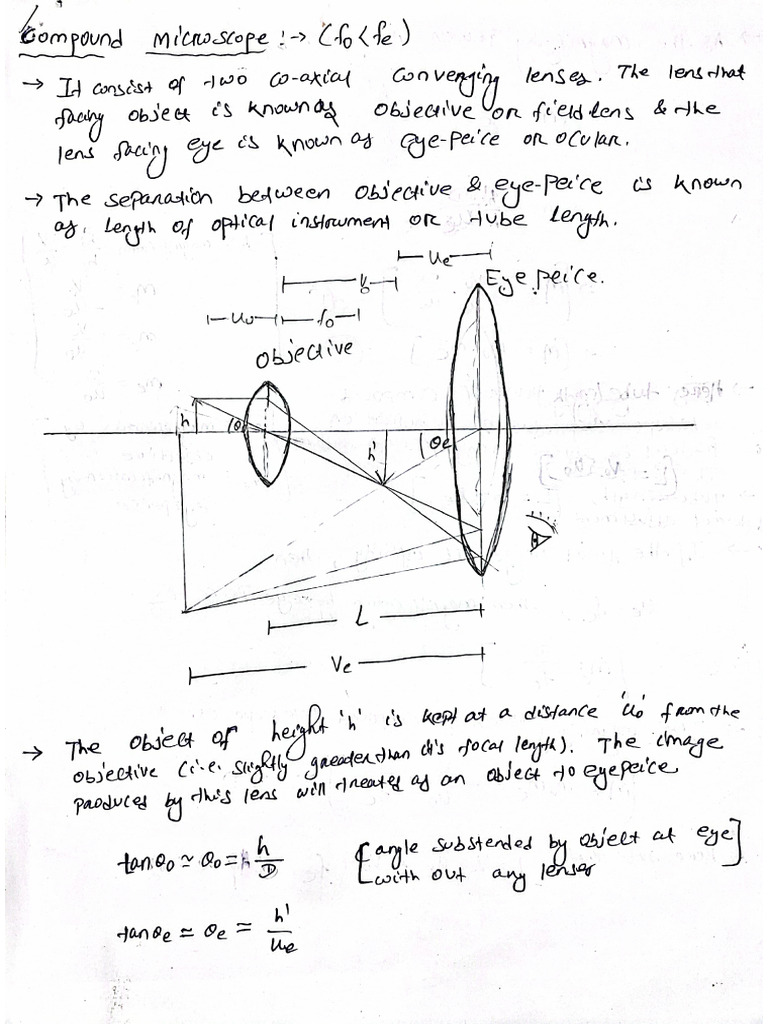 Compound Microscope :→ (fo < fe)
→ It consist of two co-axial converging lenses. The lens that
facing object is known as objective or field lens & the
lens facing eye is known as eye-peice or ocular.
→ The separation between objective & eye-peice is known
as. length of optical instrument or tube length.
ue
vo
Eye peice.
uo fo
Objective
h θo h' θe
L
Ve
→ The object of height 'h' is kept at a distance 'uo' from the
objective (i.e. slightly greater than it's focal length). The image
produces by this lens will treates as an object to eyepeice
tanθo ≃ θo = h/D [angle substended by object at eye
with out any lenses]
tanθe ≃ θe ≃ h'/ue